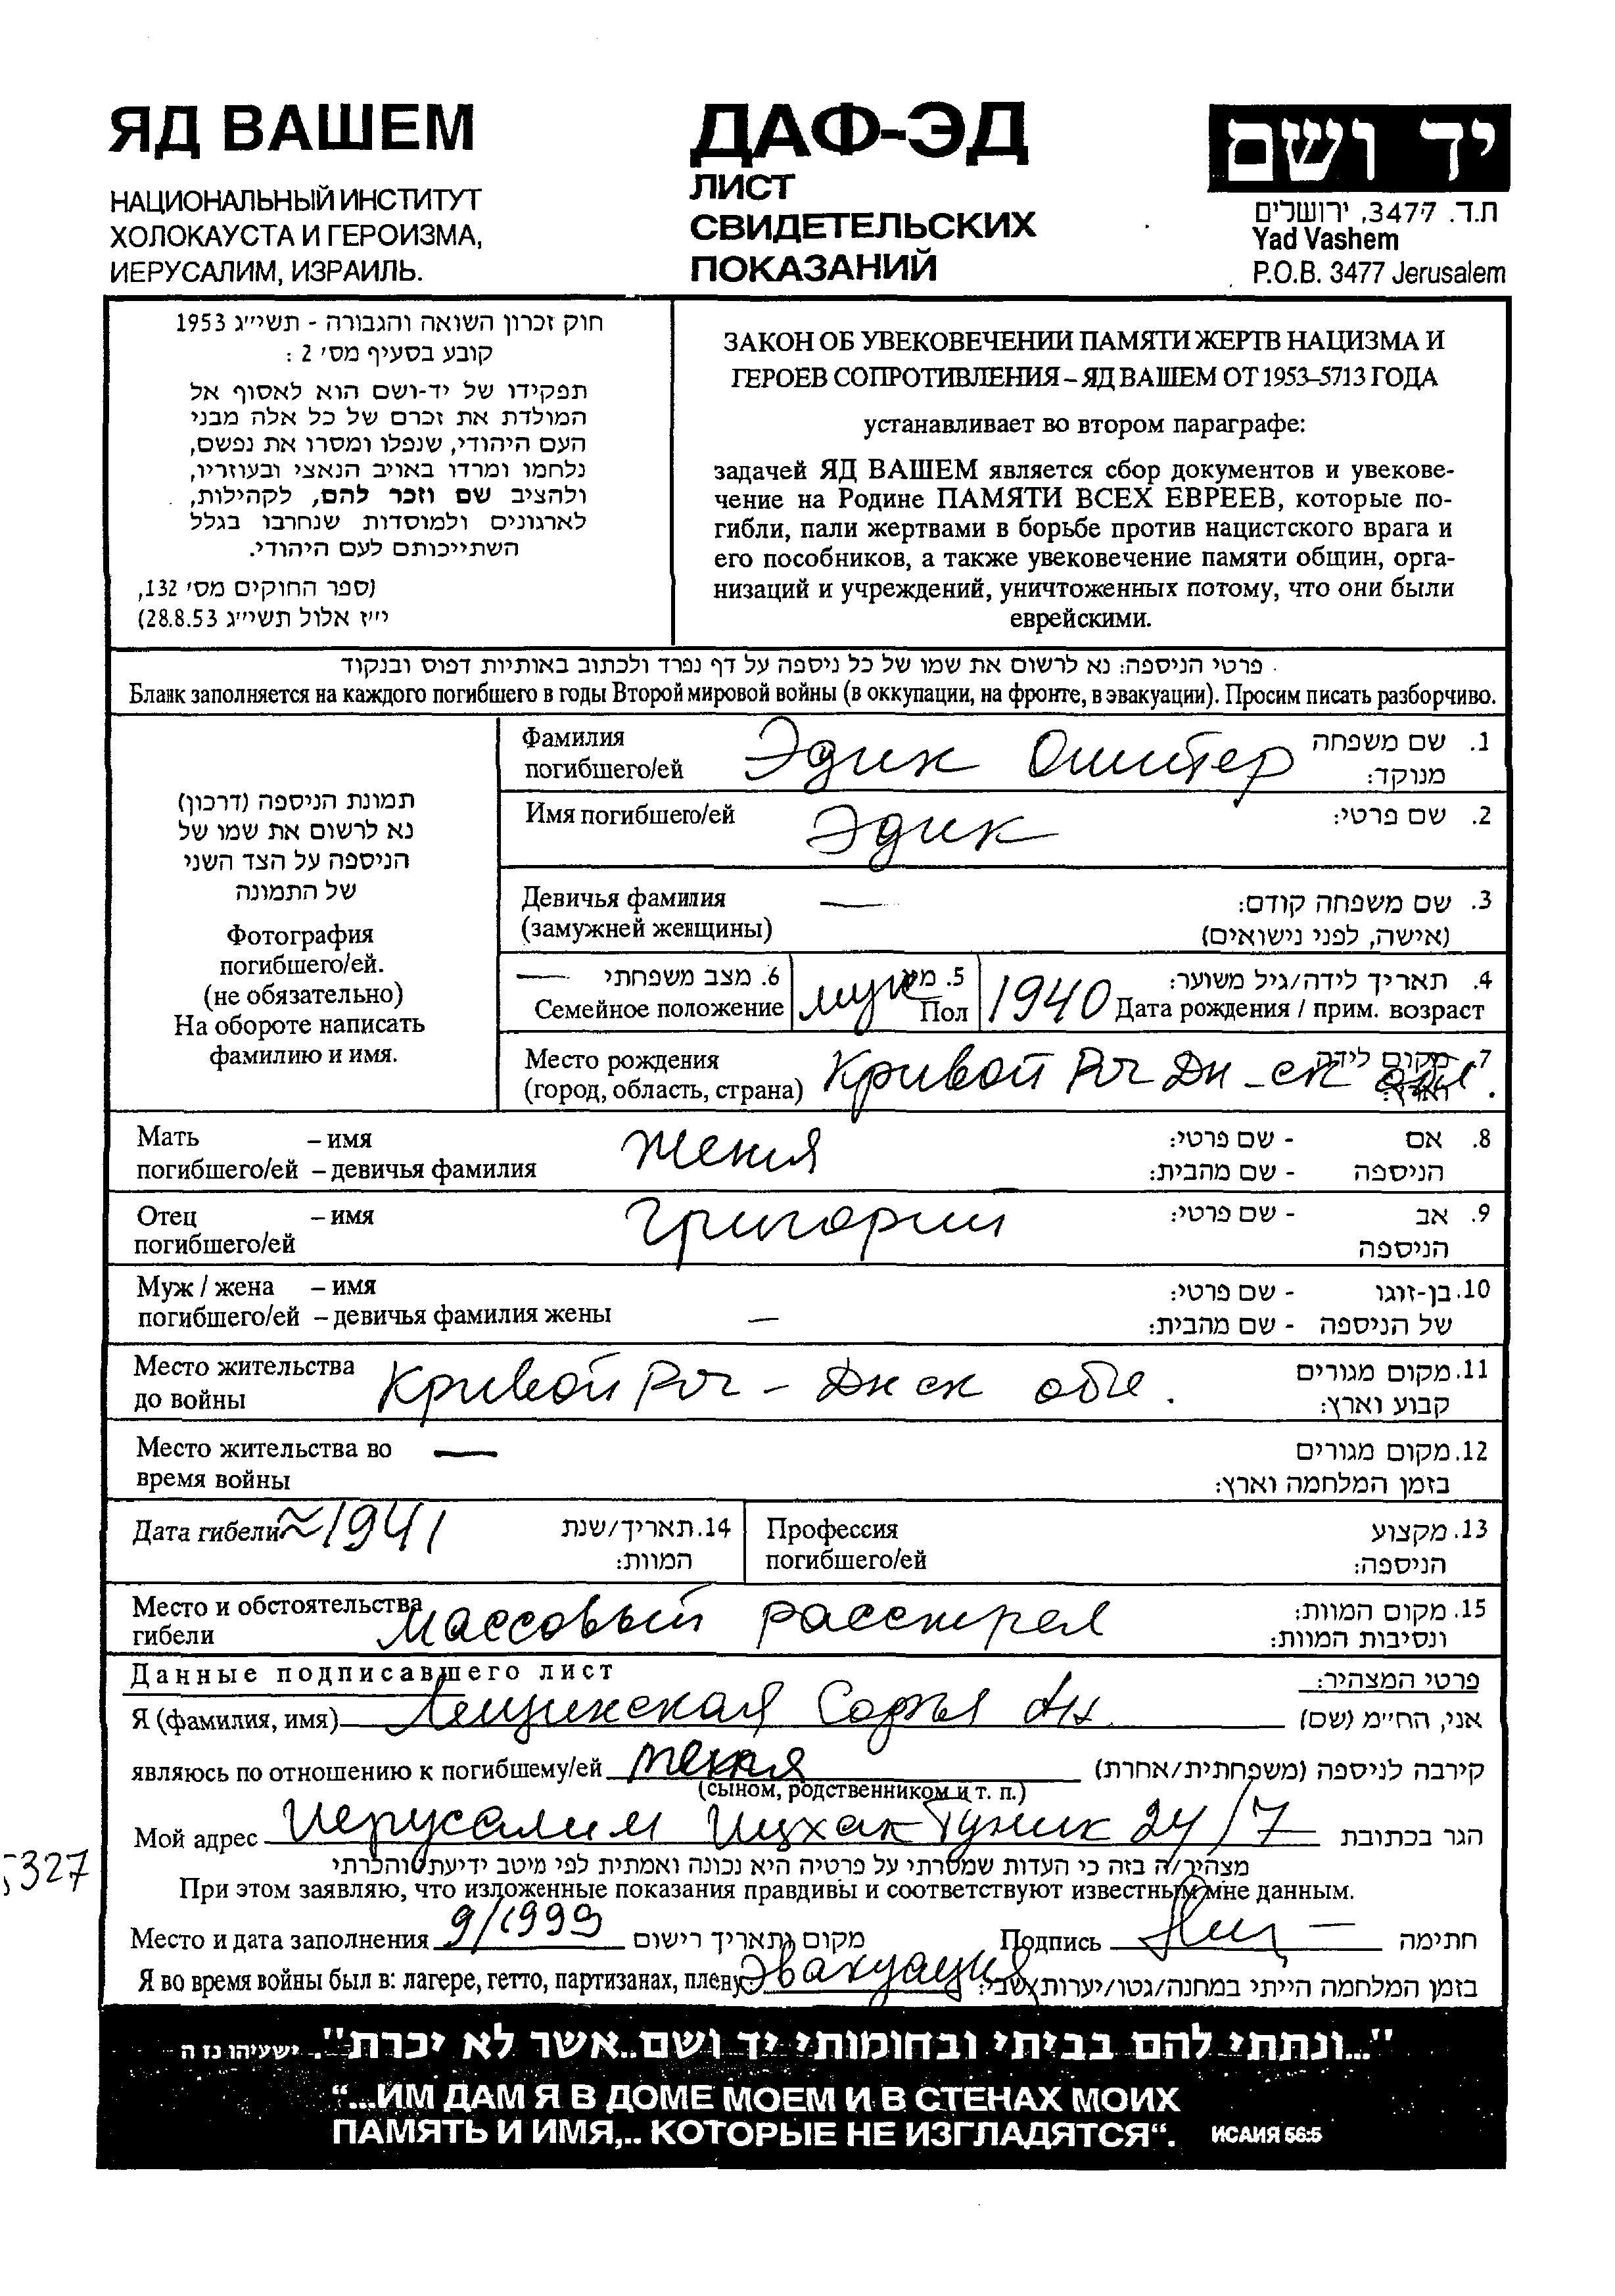 ЯД ВАШЕМ
НАЦИОНАЛЬНЫЙ ИНСТИТУТ
ХОЛОКАУСТА И ГЕРОИЗМА,
ИЕРУСАЛИМ, ИЗРАИЛЬ.
ДАФ-ЭД
ЛИСТ
СВИДЕТЕЛЬСКИХ
ПОКАЗАНИЙ
יד ושם
ת.ד. 3477, ירושלים
Yad Vashem
P.O.B. 3477 Jerusalem
חוק זכרון השואה והגבורה - תשי״ג 1953
קובע בסעיף מס׳ 2 :
תפקידו של יד-ושם הוא לאסוף אל
המולדת את זכרם של כל אלה מבני
העם היהודי, שנפלו ומסרו את נפשם,
נלחמו ומרדו באויב הנאצי ובעוזריו,
ולהציב שם וזכר להם, לקהילות,
לארגונים ולמוסדות שנחרבו בגלל
השתייכותם לעם היהודי.
(ספר החוקים מס׳ 132,
י״ז אלול תשי״ג 28.8.53)
ЗАКОН ОБ УВЕКОВЕЧЕНИИ ПАМЯТИ ЖЕРТВ НАЦИЗМА И
ГЕРОЕВ СОПРОТИВЛЕНИЯ – ЯД ВАШЕМ ОТ 1953–5713 ГОДА
устанавливает во втором параграфе:
задачей ЯД ВАШЕМ является сбор документов и увекове-
чение на Родине ПАМЯТИ ВСЕХ ЕВРЕЕВ, которые по-
гибли, пали жертвами в борьбе против нацистского врага и
его пособников, а также увековечение памяти общин, орга-
низаций и учреждений, уничтоженных потому, что они были
еврейскими.
פרטי הניספה: נא לרשום את שמו של כל ניספה על דף נפרד ולכתוב באותיות דפוס ובנקוד
Бланк заполняется на каждого погибшего в годы Второй мировой войны (в оккупации, на фронте, в эвакуации). Просим писать разборчиво.
תמונת הניספה (דרכון)
נא לרשום את שמו של
הניספה על הצד השני
של התמונה
Фотография
погибшего/ей.
(не обязательно)
На обороте написать
фамилию и имя.
Фамилия Эдик Ошитер 1. שם משפחה
погибшего/ей מנוקד:
Имя погибшего/ей Эдик 2. שם פרטי:
Девичья фамилия — 3. שם משפחה קודם:
(замужней женщины) (אישה, לפני נישואים)
— 6. מצב משפחתי муж 5. מין 1940 4. תאריך לידה/גיל משוער:
Семейное положение Пол Дата рождения / прим. возраст
Место рождения Кривой Рог Дн-ск обл. 7. מקום לידה
(город, область, страна) וארץ:
Мать – имя Женя 8. אם - שם פרטי:
погибшего/ей – девичья фамилия הניספה - שם מהבית:
Отец – имя Григорий 9. אב - שם פרטי:
погибшего/ей הניספה
Муж / жена – имя 10. בן-זוגו - שם פרטי:
погибшего/ей – девичья фамилия жены — של הניספה - שם מהבית:
Место жительства Кривой Рог - Днск обл. 11. מקום מגורים
до войны קבוע וארץ:
Место жительства во — 12. מקום מגורים
время войны בזמן המלחמה וארץ:
Дата гибели ≈1941 14. תאריך/שנת
המוות:
Профессия 13. מקצוע
погибшего/ей הניספה:
Место и обстоятельства массовый расстрел 15. מקום המוות:
гибели ונסיבות המוות:
Данные подписавшего лист פרטי המצהיר:
Я (фамилия, имя) Лещинская Софья Ан. אני, החי״מ (שם)
являюсь по отношению к погибшему/ей קירבה לניספה (משפחתית/אחרת)
(сыном, родственником и т. п.)
Мой адрес Иерусалим Ицхак Туник 24/7 הגר בכתובת
מצהיר/ה בזה כי העדות שמסרתי על פרטיה היא נכונה ואמתית לפי מיטב ידיעתי והכרתי
При этом заявляю, что изложенные показания правдивы и соответствуют известным мне данным.
5327
Место и дата заполнения 9/1999 מקום ותאריך רישום Подпись חתימה
Я во время войны был в: лагере, гетто, партизанах, плену эвакуация בזמן המלחמה הייתי במחנה/גטו/יערות/שבי:
"...ונתתי להם בביתי ובחומותי יד ושם..אשר לא יכרת". ישעיהו נז ה
“...ИМ ДАМ Я В ДОМЕ МОЕМ И В СТЕНАХ МОИХ
ПАМЯТЬ И ИМЯ,.. КОТОРЫЕ НЕ ИЗГЛАДЯТСЯ“. ИСАИЯ 56:5